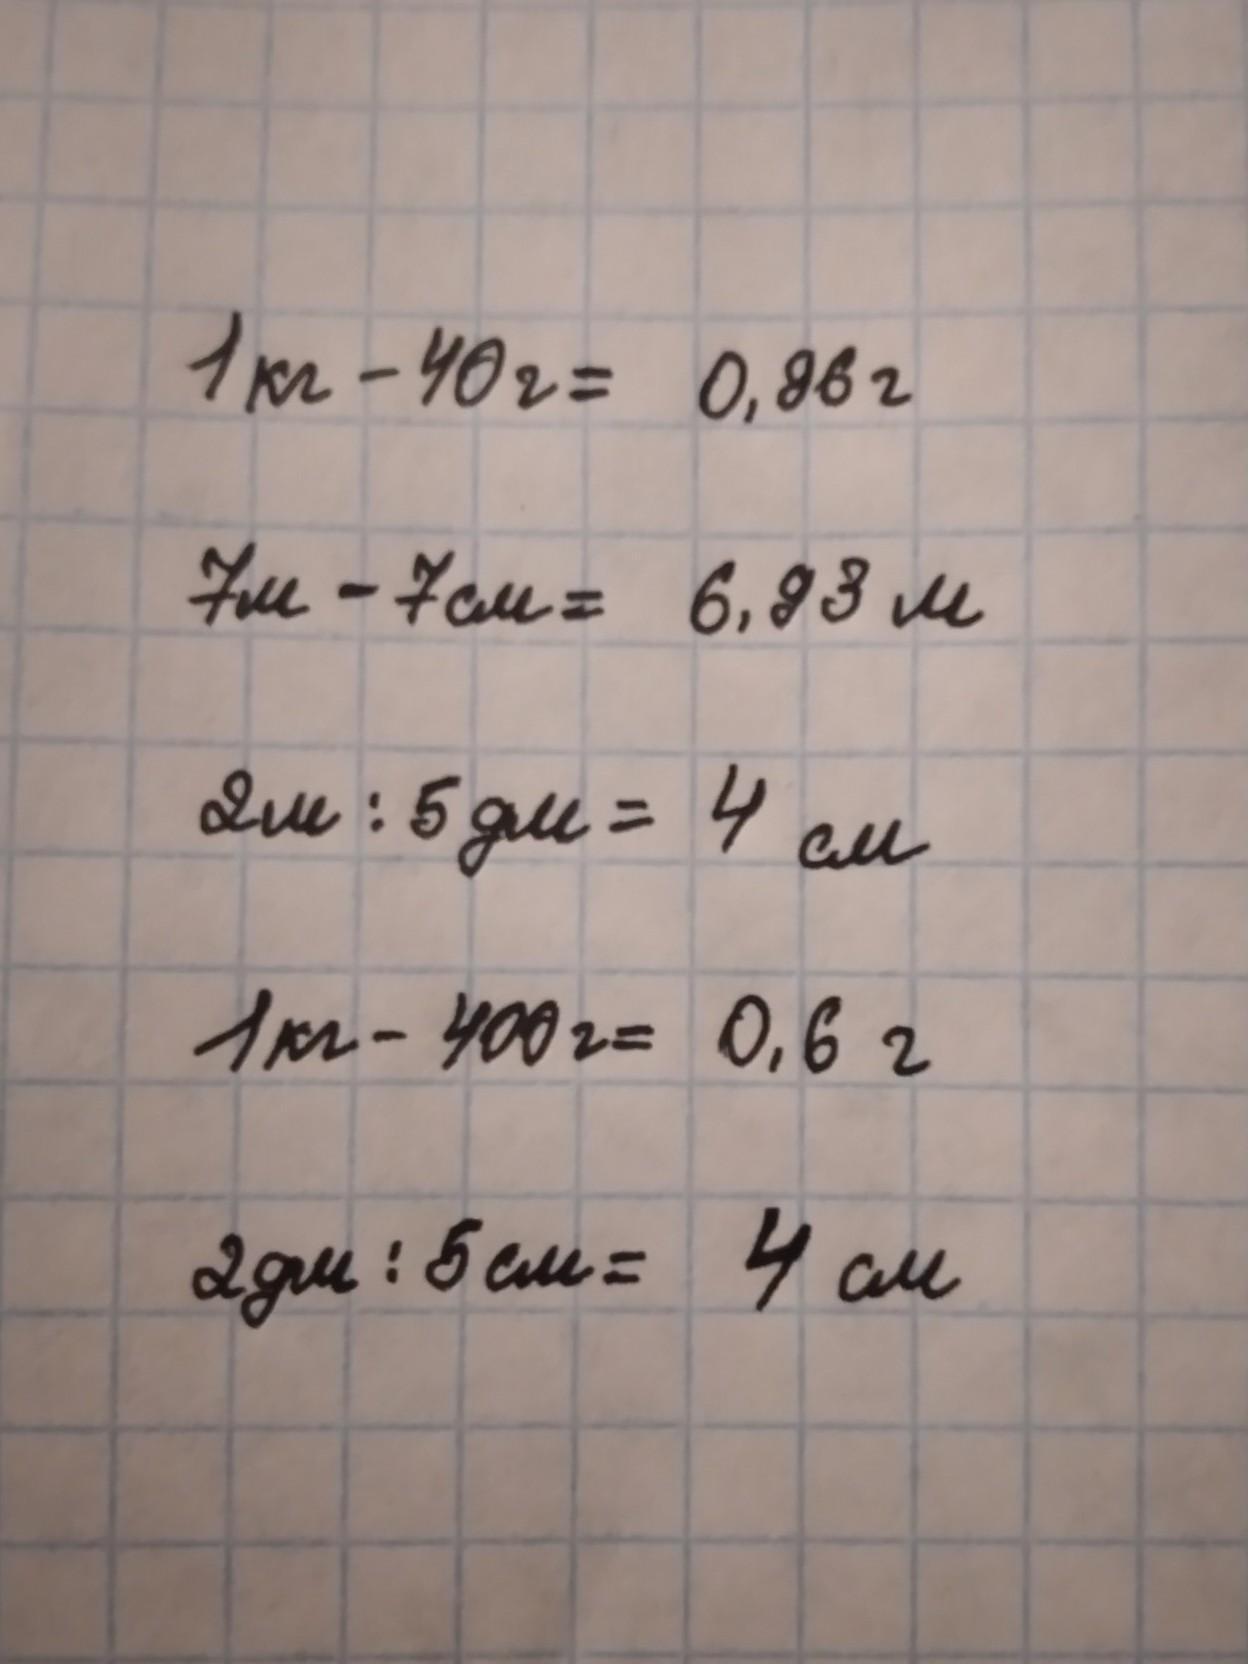 1кг - 40г = 0,96г
7м - 7см = 6,93 м
2м : 5дм = 4 см
1кг - 400г = 0,6 г
2дм : 5см = 4 см